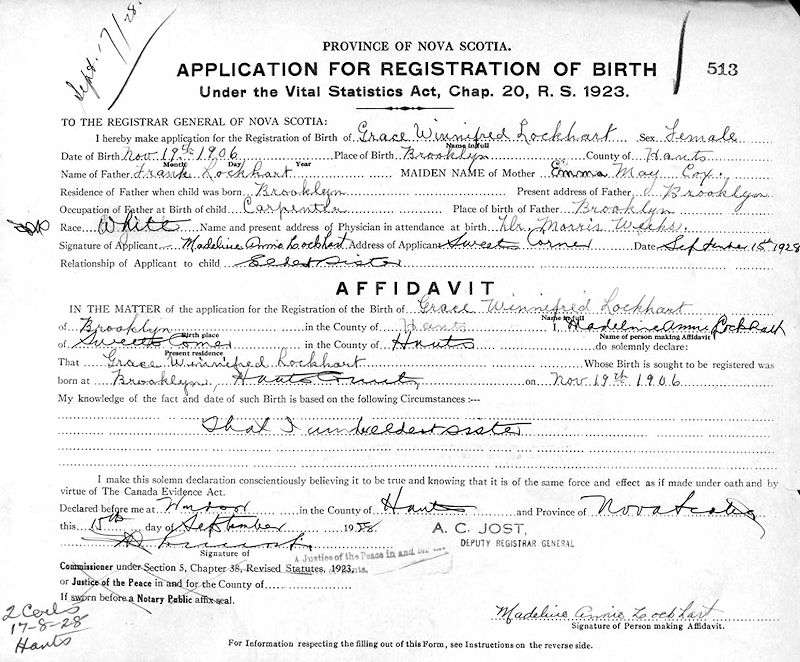 Sept. 17/28.
PROVINCE OF NOVA SCOTIA.
APPLICATION FOR REGISTRATION OF BIRTH 513
Under the Vital Statistics Act, Chap. 20, R. S. 1923.
TO THE REGISTRAR GENERAL OF NOVA SCOTIA:
I hereby make application for the Registration of Birth of Grace Winnifred Lockhart Sex Female
Name in full
Date of Birth Nov. 19th 1906 Place of Birth Brooklyn County of Hants
Month Day Year
Name of Father Frank Lockhart MAIDEN NAME of Mother Emma May Cox.
Residence of Father when child was born Brooklyn Present address of Father Brooklyn
Occupation of Father at Birth of child Carpenter Place of birth of Father Brooklyn
Race White Name and present address of Physician in attendance at birth Dr. Morris Weeks.
Signature of Applicant Madeline Annie Lockhart Address of Applicant Sweets Corner Date September 15th 1928
Relationship of Applicant to child Eldest Sister
AFFIDAVIT
IN THE MATTER of the application for the Registration of the Birth of Grace Winnifred Lockhart
Name in full
of Brooklyn in the County of Hants I, Madeline Annie Lockhart
Birth place Name of person making Affidavit
of Sweets Corner in the County of Hants do solemnly declare:
Present residence
That Grace Winnifred Lockhart Whose Birth is sought to be registered was
born at Brooklyn, Hants County on Nov 19th 1906
My knowledge of the fact and date of such Birth is based on the following Circumstances :—
That I am eldest sister
I make this solemn declaration conscientiously believing it to be true and knowing that it is of the same force and effect as if made under oath and by
virtue of The Canada Evidence Act.
Declared before me at Windsor in the County of Hants and Province of Nova Scotia
this 15th day of September 1928
A. C. JOST,
DEPUTY REGISTRAR GENERAL
Signature of
A Justice of the Peace in and for the
Commissioner under Section 5, Chapter 38, Revised Statutes, 1923,
or Justice of the Peace in and for the County of
If sworn before a Notary Public affix seal.
2 Certs
17-8-28
Hants
Madeline Annie Lockhart
Signature of Person making Affidavit.
For Information respecting the filling out of this Form, see Instructions on the reverse side.